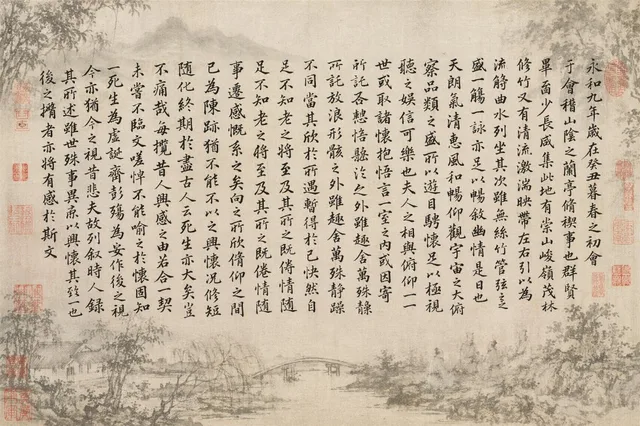 永和九年歲在癸丑暮春之初會
于會稽山陰之蘭亭脩禊事也群賢
畢面少長咸集此地有崇山峻嶺茂林
脩竹又有清流激湍映帶左右引以為
流觴曲水列坐其次雖無絲竹管弦之
盛一觴一詠亦足以暢敘幽情是日也
天朗氣清惠風和暢仰觀宇宙之大俯
察品類之盛所以遊目騁懷足以極視
聽之娛信可樂也夫人之相與俯仰一一
世或取諸懷抱悟言一室之內或因寄
所託各憩悟懸於之外雖趣舍萬殊靜
所託放浪形骸之外雖趣舍萬殊靜躁
不同當其欣於所遇暫得於己快然自
足不知老之將至及其所之既倦情隨
足不知老之將至及其所之既倦情隨
事遷感慨系之矣向之所欣俯仰之間
已為陳跡猶不能不以之興懷況修短
隨化終期於盡古人云死生亦大矣豈
不痛哉每攬昔人興感之由若合一契
未嘗不臨文嗟悼不能喻之於懷固知
一死生為虛誕齊彭殤為妄作後之視
今亦猶今之視昔悲夫故列敘時人錄
其所述雖世殊事異所以興懷其致一也
後之攬者亦將有感於斯文